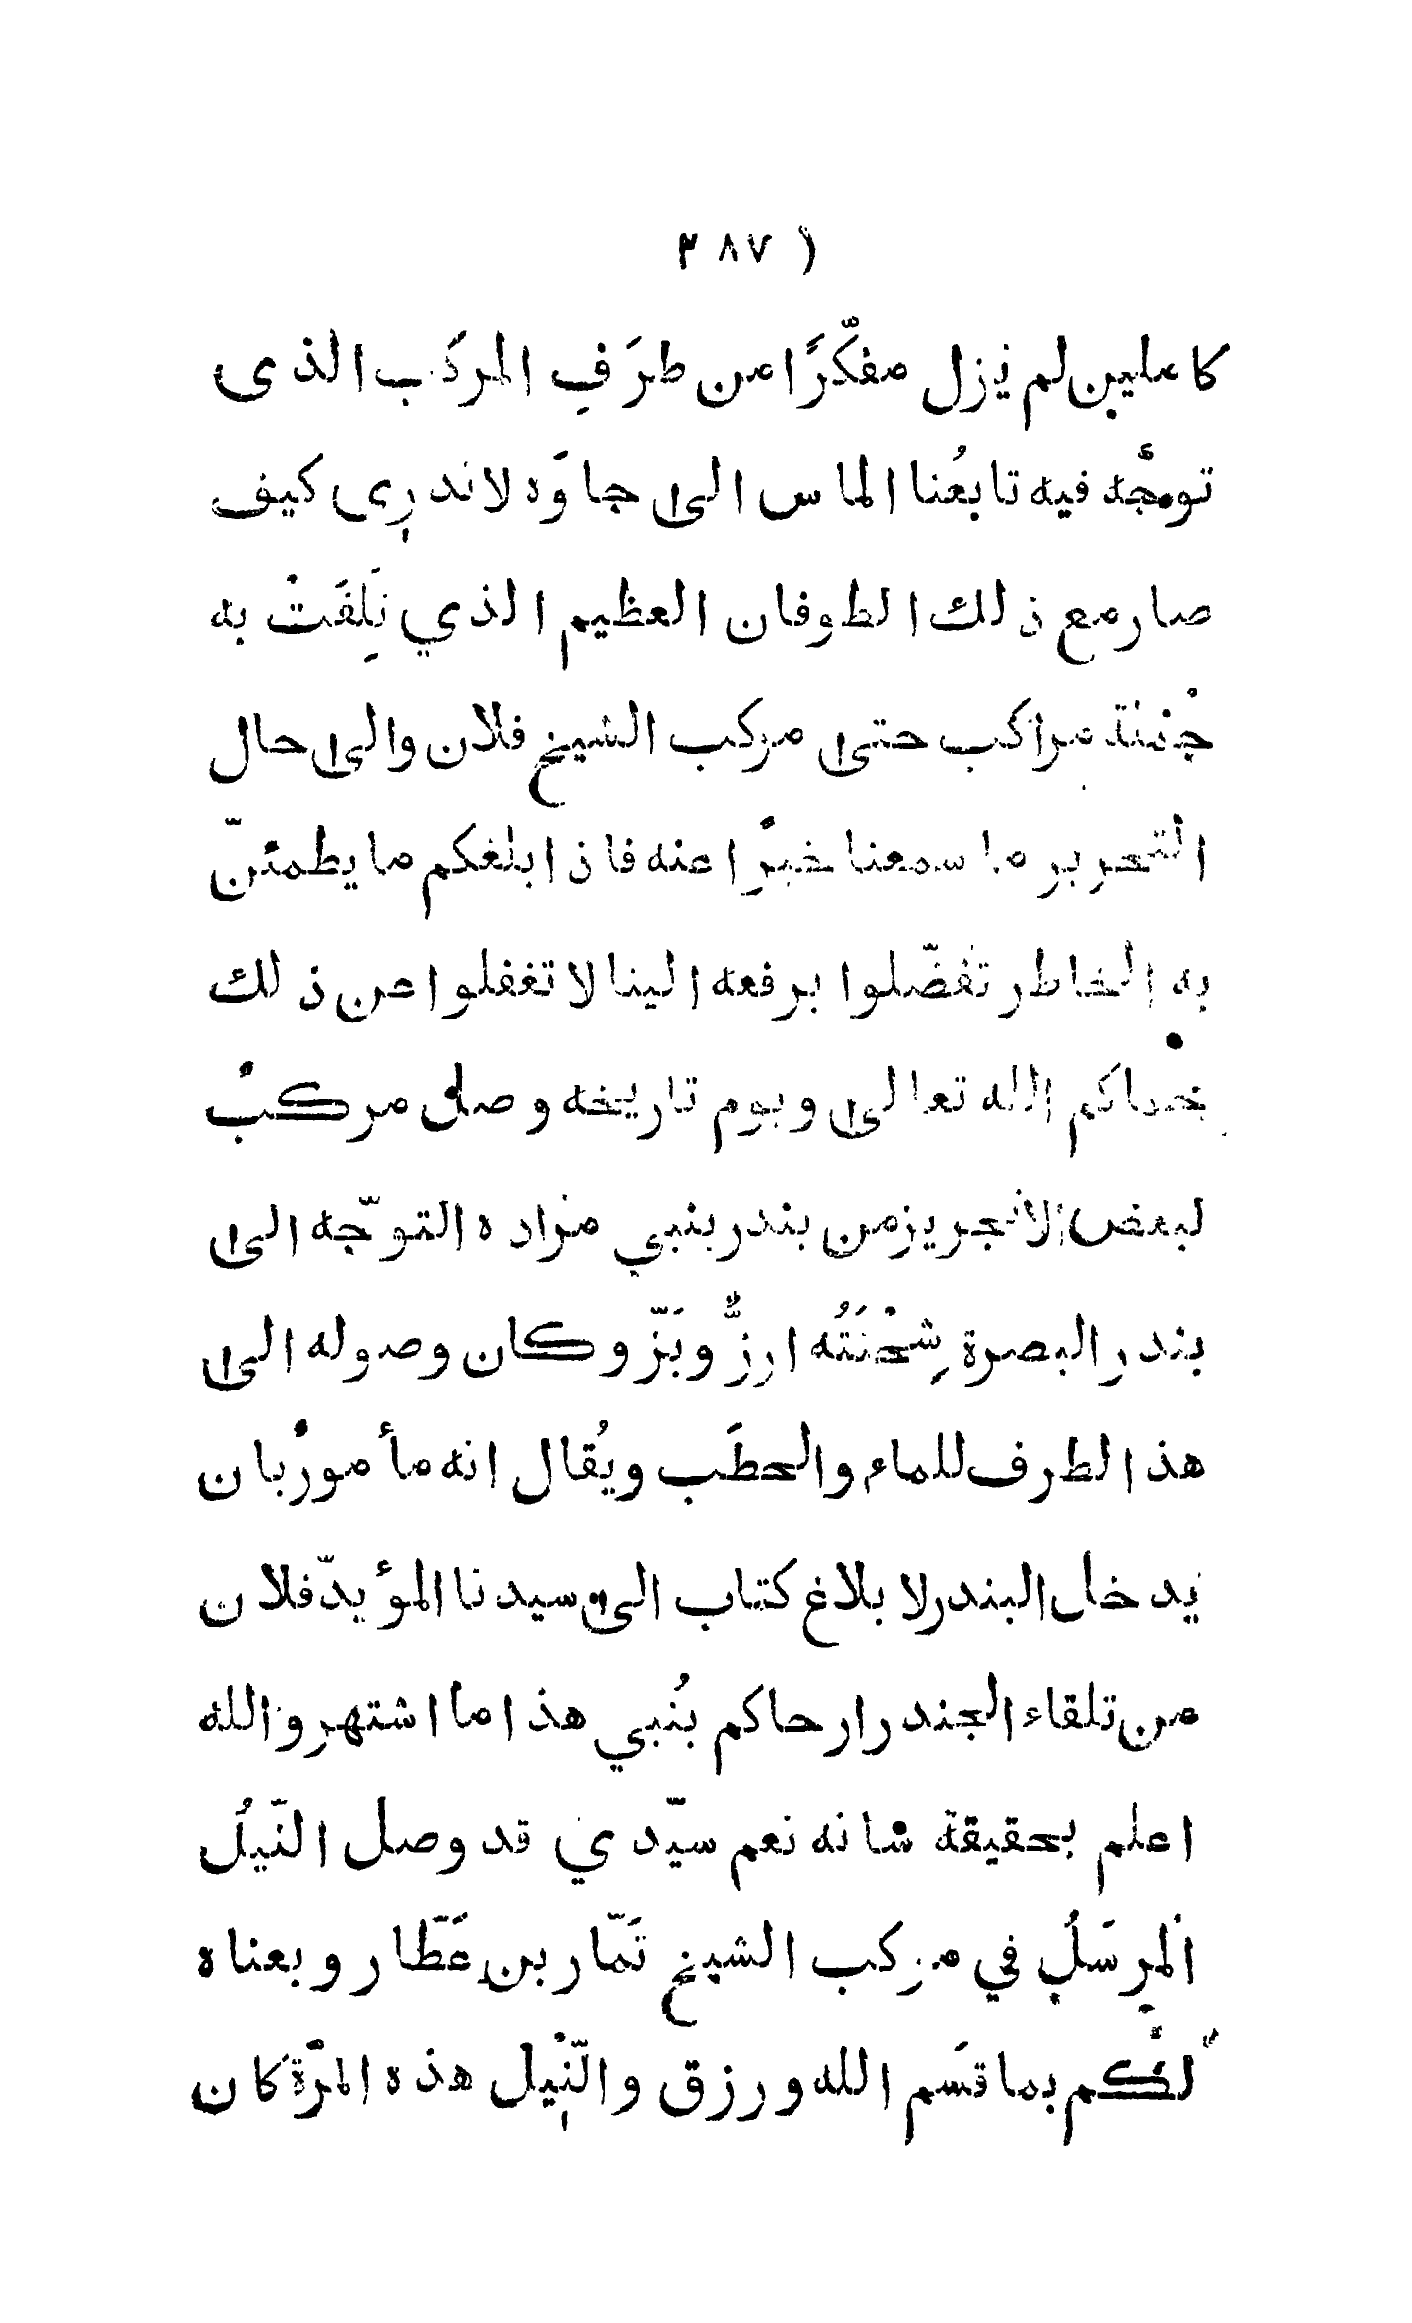 ( ٣٨٧
كاملين لم يزل مفكّرًا من طرَفِ المركَب الذى
توجّه فيه تابعُنا الماس الى جاوَه لاندرِى كيف
صار مع ذلك الطوفان العظيم الذي تَلِفَتْ به
خمسة مراكب حتى مركب الشيخ فلان والى حال
التحرير ما سمعنا خبرًا عنه فاذا بلغكم ما يطمئنّ
به الخاطر تفضّلوا برفعه الينا لا تغفلوا عن ذلك
حماكم الله تعالى ويوم تاريخه وصل مركبٌ
لبعض الانجريز من بندر بنبي مراده التوجّه الى
بندر البصرة شِحْنَتُه ارزٌّ وبَزّ وكان وصوله الى
هذا الطرف للماء والحطَب ويُقال انه مأمورٌ بان
يدخل البندر لابلاغ كتاب الى سيدنا المؤيدّ فلان
من تلقاء الجندرار حاكم بُنبي هذا ما اشتهر والله
اعلم بحقيقة شانه نعم سيّدي قد وصل النّيلُ
المرسَلُ في مركب الشيخ تَمّار بن عَطّار وبعناه
لكُم بما قسَم الله ورزق والنِّيل هذه المرّة كان